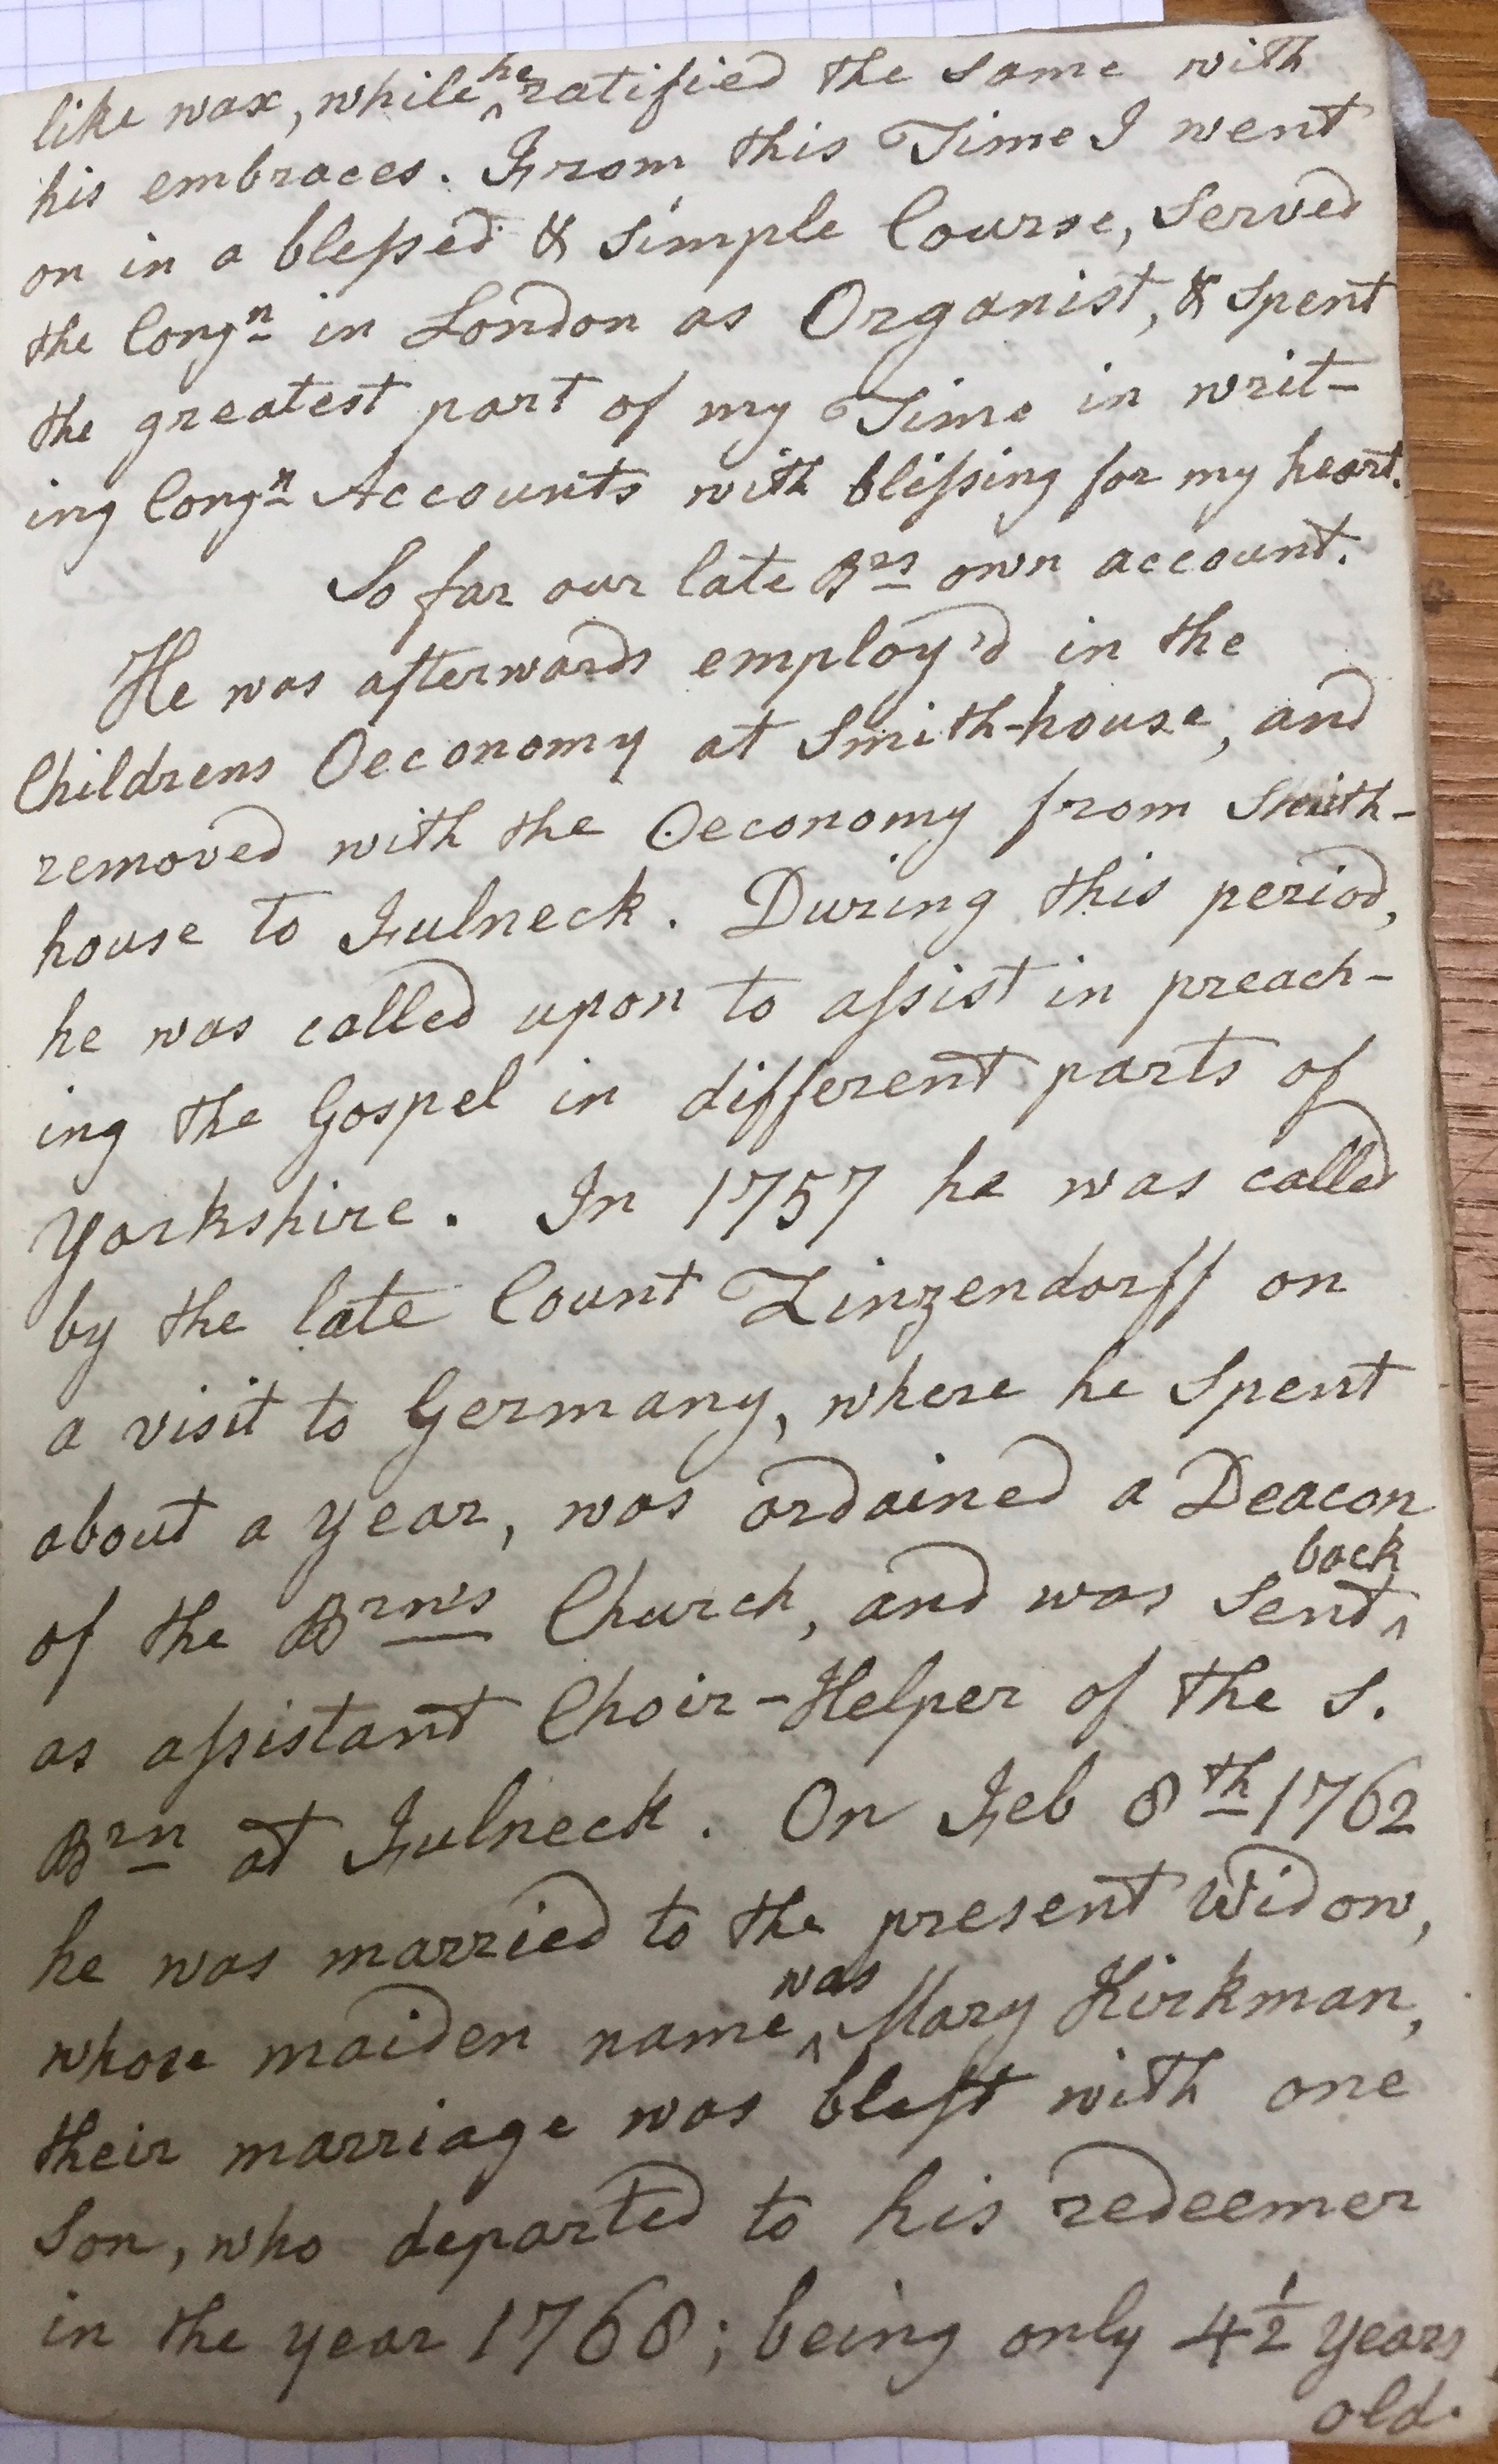 like wax, while he ratified the same with
his embraces. From this Time I went
on in a blessed & simple Course, Served
the Congn in London as Organist, & Spent
the greatest part of my Time in writ-
ing Congn Accounts with blissing for my heart.
So far our late Brs own account.
He was afterwards employ'd in the
Childrens Oeconomy at Smith-house, and
removed with the Oeconomy from Smith-
house to Fulneck. During this period,
he was called upon to assist in preach-
ing the Gospel in different parts of
Yorkshire. In 1757 he was called
by the late Count Zinzendorff on
a visit to Germany, where he Spent
about a year, was ordained a Deacon
of the Brn's Church, and was Sent back
as assistant Choir-Helper of the S.
Brn at Fulneck. On Feb 8th 1762
he was married to the present Widow,
whose maiden name was Mary Kirkman,
their marriage was blest with one
Son, who departed to his redeemer
in the year 1768; being only 4½ years
old.